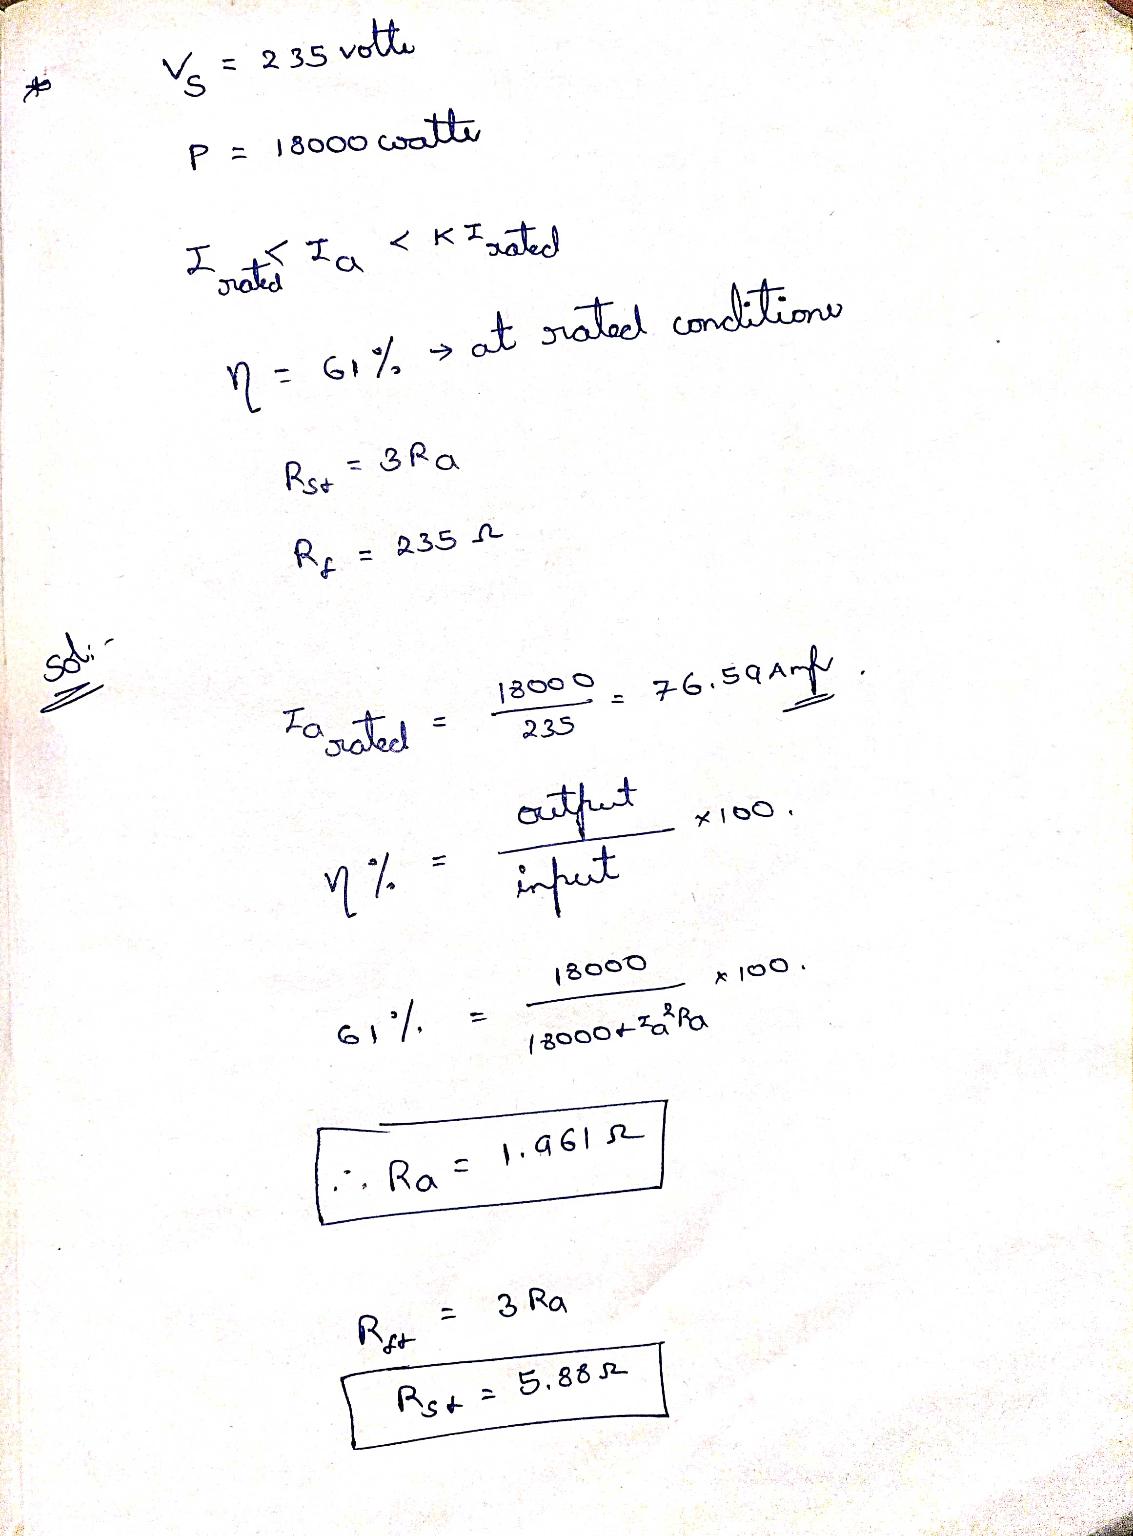 * V_S = 235 volts
P = 18000 watts
I_rated < I_a < K I_rated
η = 61% → at rated conditions
R_st = 3Ra
R_f = 235 Ω
Sol:-
Ia_rated = 18000 / 235 = 76.59 Amp.
η% = output / input × 100.
61% = 18000 / 18000 + Ia²Ra × 100.
∴ Ra = 1.961 Ω
R_st = 3 Ra
R_st = 5.88 Ω